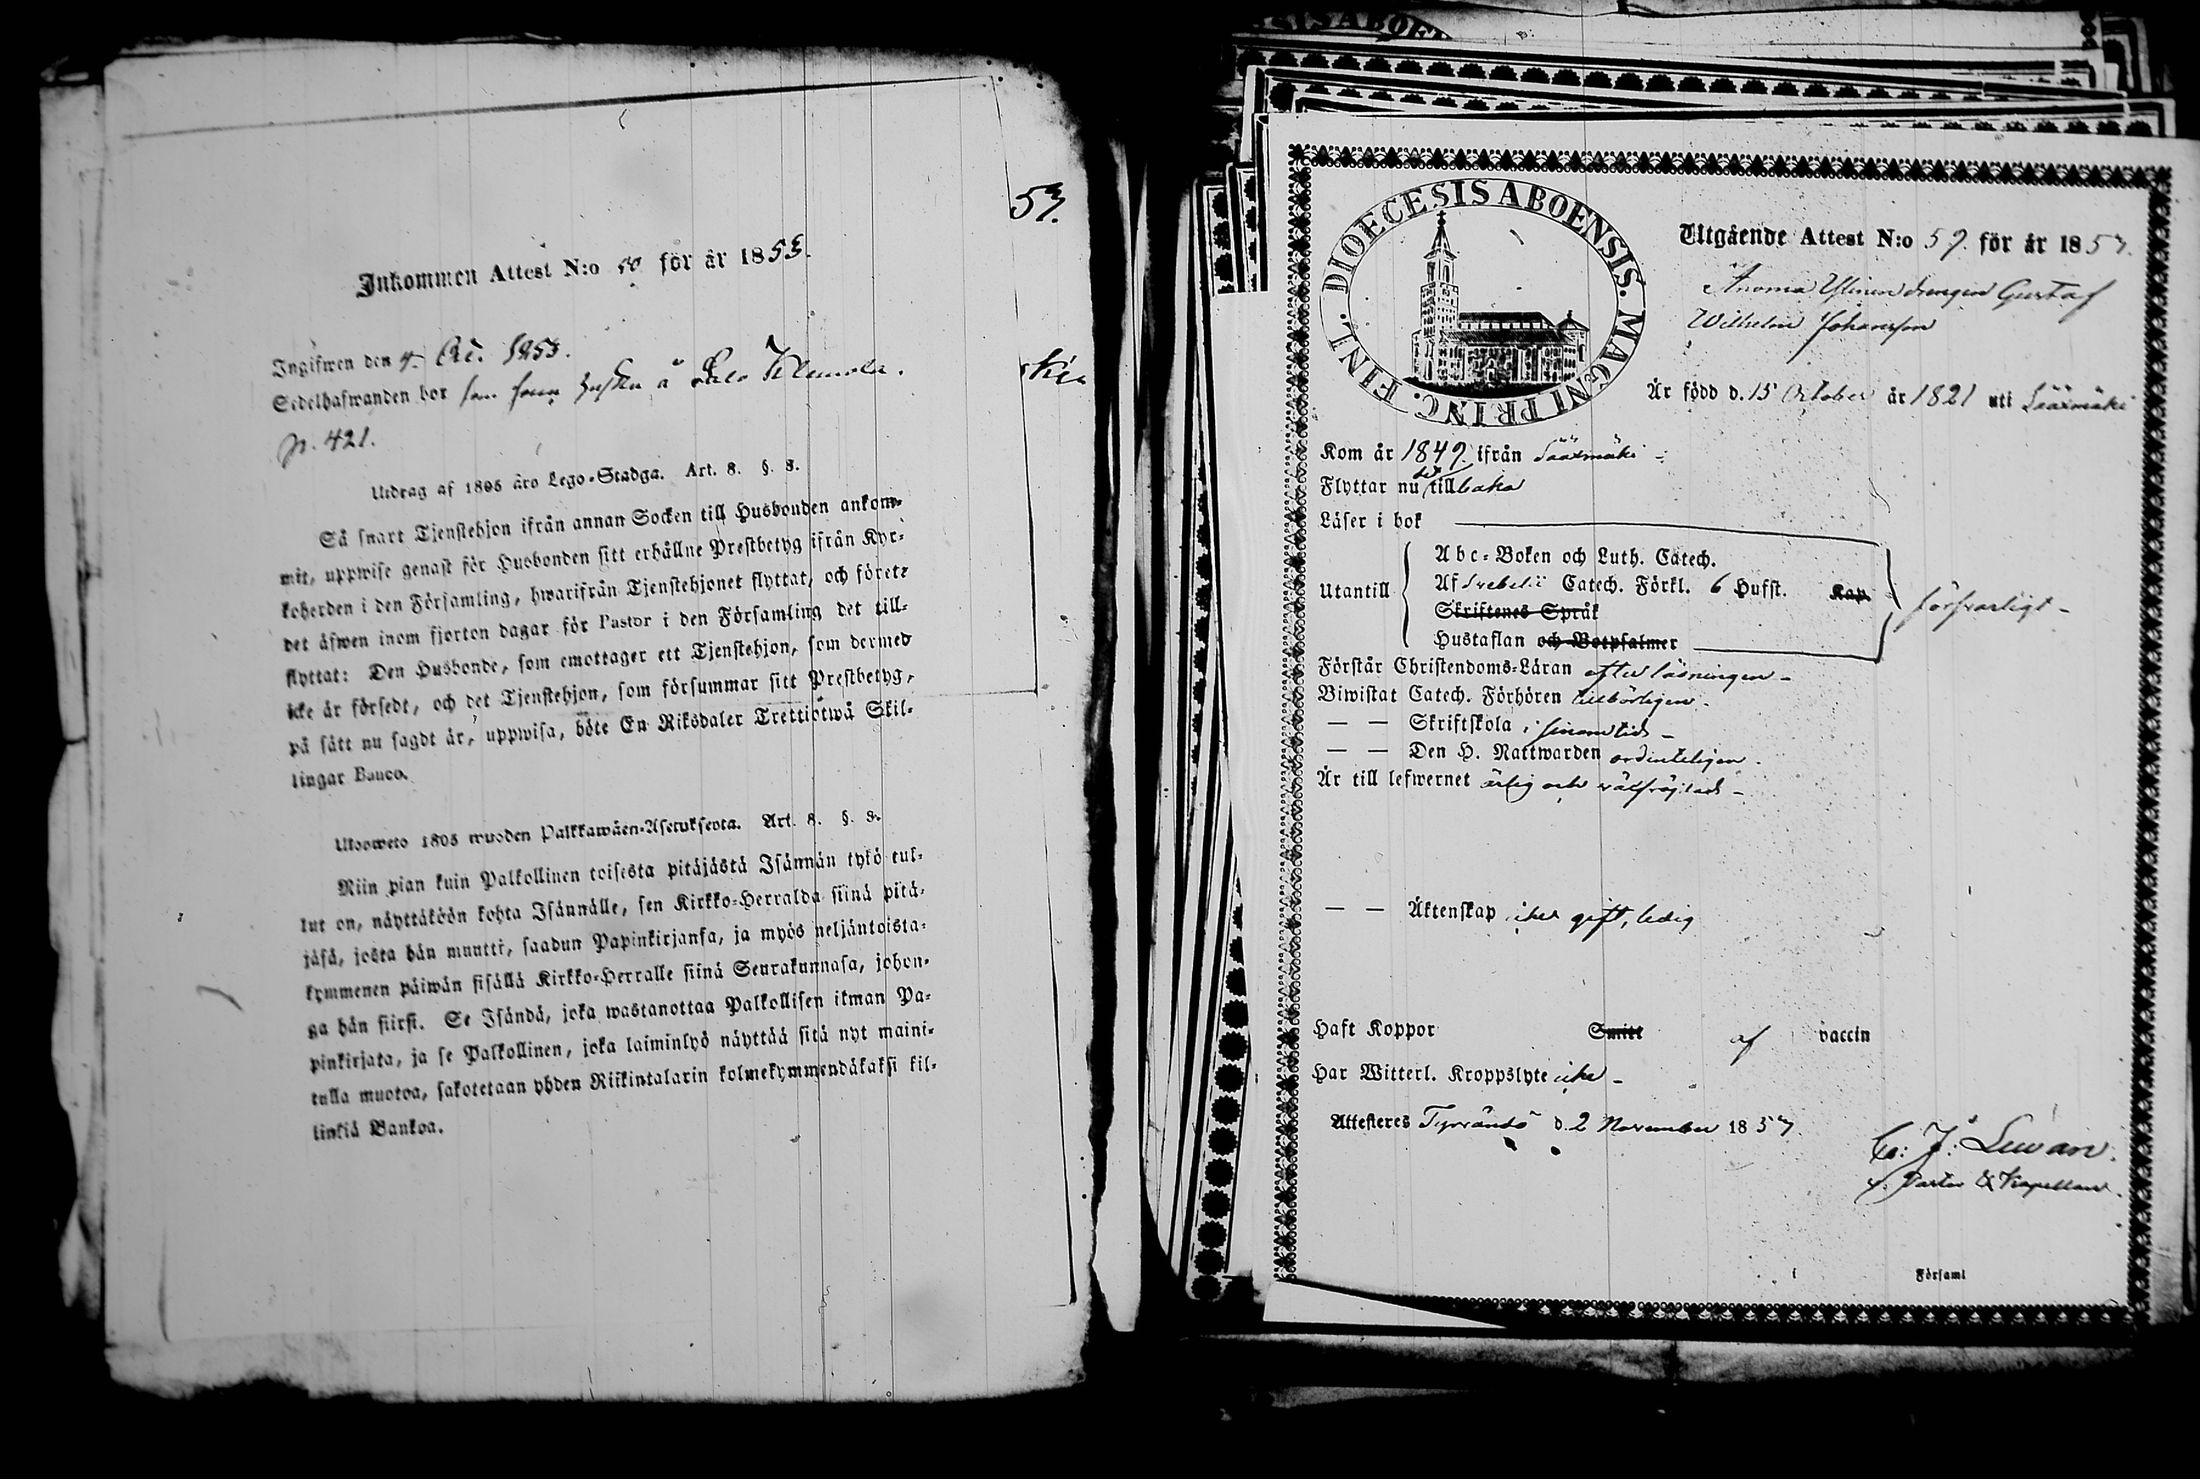 53.
Inkommen Attest N:o 50 för år 1853.
Ingifwen den 4 1853.
Sedelhafwanden bor å
p. 421.
Utdrag af 1805 års Lego-Stadga. Art. 8. §. 8.
Så snart Tjenstehjon ifrån annan Socken till Husbonden ankom-
mit, uppwise genast för Husbonden sitt erhållne Prestbetyg ifrån Kyr-
koherden i den Församling, hwarifrån Tjenstehjonet flyttat, och förete
det äfwen inom fjorton dagar för Pastor i den Församling det till-
flyttat: Den Husbonde, som emottager ett Tjenstehjon, som dermed
icke är försedt, och det Tjenstehjon, som försummar sitt Prestbetyg,
på sätt nu sagdt är, uppwisa, böte En Riksdaler Trettiotwå Skil-
lingar Banco.
Ulosweto 1805 wuoden Palkkawäen-Asetuksesta. Art. 8. §. 8.
Niin pian kuin Palkollinen toisesta pitäjästä Isännän tykö tul-
lut on, näyttäköön kohta Isännälle, sen Kirkko-Herralda siinä pitä-
jäsä, josta hän muutti, saadun Papinkirjansa, ja myös neljäntoista-
kymmenen päiwän sisällä Kirkko-Herralle siinä Seurakunnasa, johon-
ga hän siirsi. Se Isändä, joka wastanottaa Palkollisen ilman Pa-
pinkirjata, ja se Palkollinen, joka laiminlyö näyttää sitä nyt maini-
tulla muotoa, sakotetaan yhden Riikintalarin kolmekymmendäkaksi kil-
linkiä Bankoa.
DIOECESIS ABOENSIS. MAGNI PRINC. FINL.
Utgående Attest N:o 59 för år 1853.
Anomaa Ylinen drengen Gustaf
Wilhelm Johansson
Är född d. 15 October år 1821 uti Sääxmäki
Kom år 1849 ifrån Sääxmäki
Flyttar nu dit tillbaka
Läser i bok
Utantill
Abc-Boken och Luth. Catech.
Af Svebelii Catech. Förkl. 6 Hufst. Kap.
Skriftenes Språk
Hustaflan och Botpsalmer
försvarligt
Förstår Christendoms-Läran efter läsningen
Biwistat Catech. Förhören tillbörligen
— — Skriftskola i sinom tid
— — Den H. Nattwarden ordenteligen
Är till lefwernet ärlig och välfräjdad
— — Äktenskap icke gift, ledig
Haft Koppor Smitt af vaccin
Har Witterl. Kroppslyte icke
Attesteres Tyrväntö d. 2 November 1853
C: J: Lewan.
v. Pastor & Kapellan.
i Församl